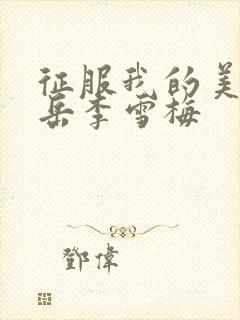 征服我的美
岳李雪梅
鄧偉